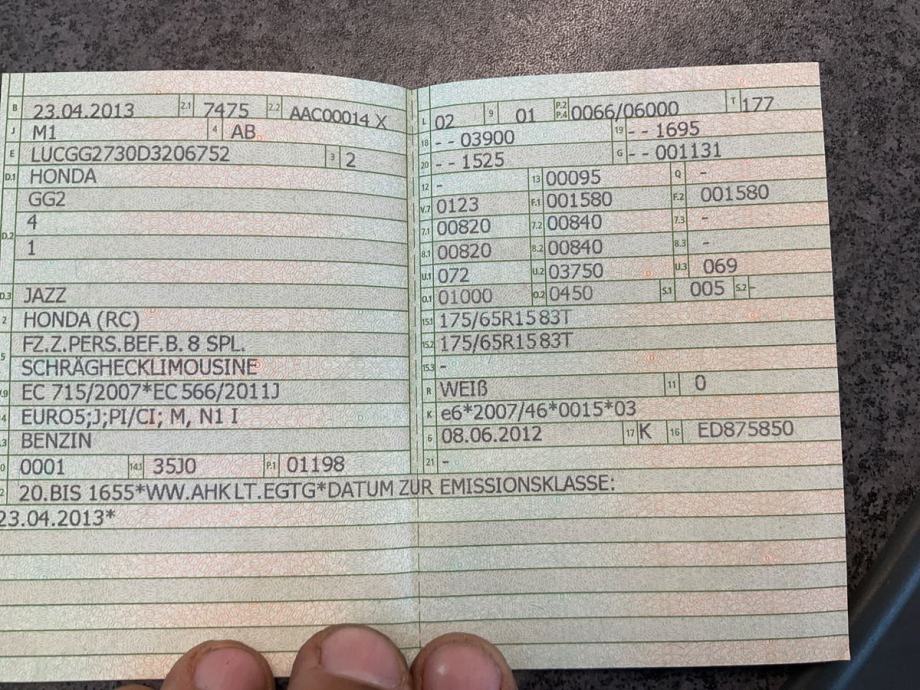 B 23.04.2013 2.1 7475 2.2 AAC00014 X
J M1 4 AB
E LUCGG2730D3206752 3 2
D.1 HONDA
GG2
D.2 4
1
D.3 JAZZ
2 HONDA (RC)
FZ.Z.PERS.BEF.B. 8 SPL.
5 SCHRÄGHECKLIMOUSINE
V.9 EC 715/2007*EC 566/2011J
14 EURO5;J;PI/CI; M, N1 I
P.3 BENZIN
10 0001 14.1 35J0 P.1 01198
22 20.BIS 1655*WW.AHK LT.EGTG*DATUM ZUR EMISSIONSKLASSE:
23.04.2013*
L 02 9 01 P.2 P.4 0066/06000 T 177
18 - - 03900 19 - - 1695
20 - - 1525 G - - 001131
12 - 13 00095 Q -
V.7 0123 F.1 001580 F.2 001580
7.1 00820 7.2 00840 7.3 -
8.1 00820 8.2 00840 8.3 -
U.1 072 U.2 03750 U.3 069
O.1 01000 O.2 0450 S.1 005 S.2 -
15.1 175/65R15 83T
15.2 175/65R15 83T
15.3 -
R WEIß 11 0
K e6*2007/46*0015*03
6 08.06.2012 17 K 16 ED875850
21 -